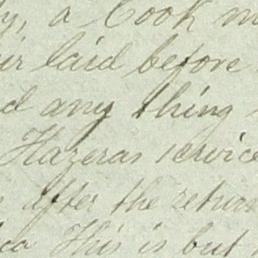 a Cook
laid before
d any thing
Hazeras service
after the return
This is but